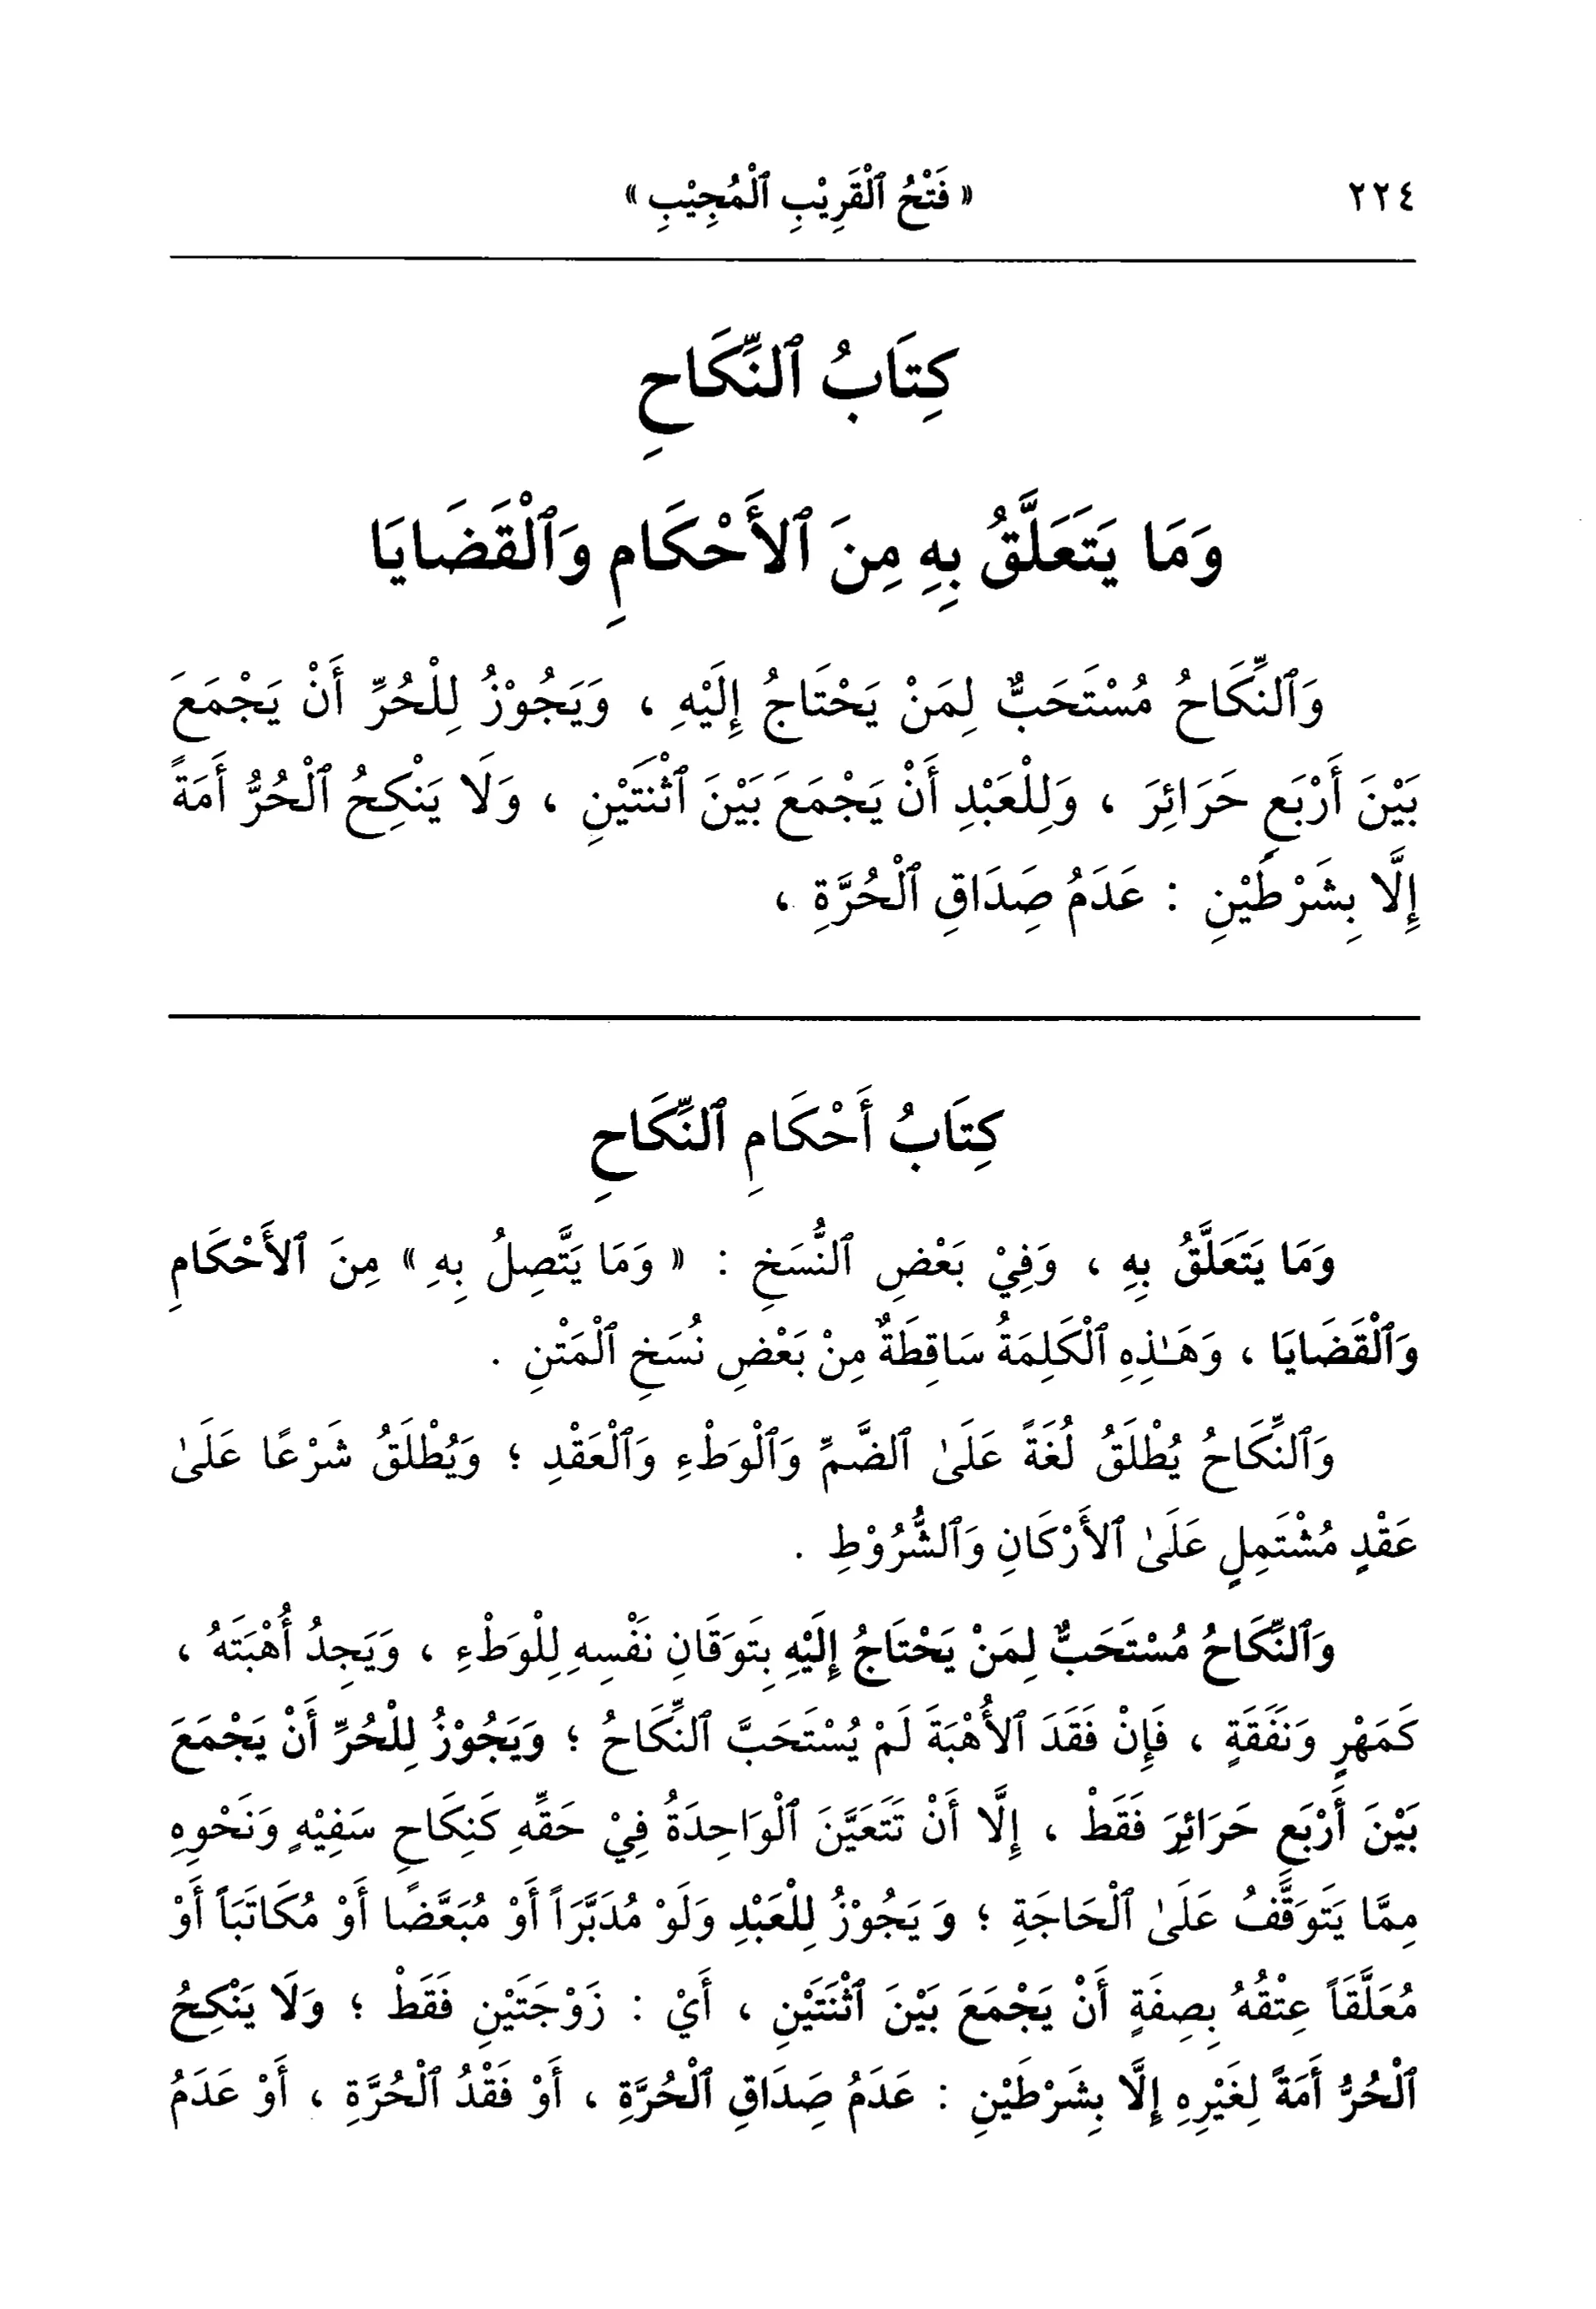 ٢٢٤ « فَتْحُ ٱلْقَرِيْبِ ٱلْمُجِيْبِ »
كِتَابُ ٱلنِّكَاحِ
وَمَا يَتَعَلَّقُ بِهِ مِنَ ٱلأَحْكَامِ وَٱلْقَضَايَا
وَٱلنِّكَاحُ مُسْتَحَبٌّ لِمَنْ يَحْتَاجُ إِلَيْهِ ، وَيَجُوْزُ لِلْحُرِّ أَنْ يَجْمَعَ
بَيْنَ أَرْبَعِ حَرَائِرَ ، وَلِلْعَبْدِ أَنْ يَجْمَعَ بَيْنَ ٱثْنَتَيْنِ ، وَلَا يَنْكِحُ ٱلْحُرُّ أَمَةً
إِلَّا بِشَرْطَيْنِ : عَدَمُ صِدَاقِ ٱلْحُرَّةِ ،
كِتَابُ أَحْكَامِ ٱلنِّكَاحِ
وَمَا يَتَعَلَّقُ بِهِ ، وَفِيْ بَعْضِ ٱلنُّسَخِ : « وَمَا يَتَّصِلُ بِهِ » مِنَ ٱلأَحْكَامِ
وَٱلْقَضَايَا ، وَهَـٰذِهِ ٱلْكَلِمَةُ سَاقِطَةٌ مِنْ بَعْضِ نُسَخِ ٱلْمَتْنِ .
وَٱلنِّكَاحُ يُطْلَقُ لُغَةً عَلَىٰ ٱلضَّمِّ وَٱلْوَطْءِ وَٱلْعَقْدِ ؛ وَيُطْلَقُ شَرْعًا عَلَىٰ
عَقْدٍ مُشْتَمِلٍ عَلَىٰ ٱلأَرْكَانِ وَٱلشُّرُوْطِ .
وَٱلنِّكَاحُ مُسْتَحَبٌّ لِمَنْ يَحْتَاجُ إِلَيْهِ بِتَوَقَانِ نَفْسِهِ لِلْوَطْءِ ، وَيَجِدُ أُهْبَتَهُ ،
كَمَهْرٍ وَنَفَقَةٍ ، فَإِنْ فَقَدَ ٱلأُهْبَةَ لَمْ يُسْتَحَبَّ ٱلنِّكَاحُ ؛ وَيَجُوْزُ لِلْحُرِّ أَنْ يَجْمَعَ
بَيْنَ أَرْبَعِ حَرَائِرَ فَقَطْ ، إِلَّا أَنْ تَتَعَيَّنَ ٱلْوَاحِدَةُ فِيْ حَقِّهِ كَنِكَاحِ سَفِيْهٍ وَنَحْوِهِ
مِمَّا يَتَوَقَّفُ عَلَىٰ ٱلْحَاجَةِ ؛ وَ يَجُوْزُ لِلْعَبْدِ وَلَوْ مُدَبَّرَاً أَوْ مُبَعَّضًا أَوْ مُكَاتَبَاً أَوْ
مُعَلَّقَاً عِتْقُهُ بِصِفَةٍ أَنْ يَجْمَعَ بَيْنَ ٱثْنَتَيْنِ ، أَيْ : زَوْجَتَيْنِ فَقَطْ ؛ وَلَا يَنْكِحُ
ٱلْحُرُّ أَمَةً لِغَيْرِهِ إِلَّا بِشَرْطَيْنِ : عَدَمُ صِدَاقِ ٱلْحُرَّةِ ، أَوْ فَقْدُ ٱلْحُرَّةِ ، أَوْ عَدَمُ